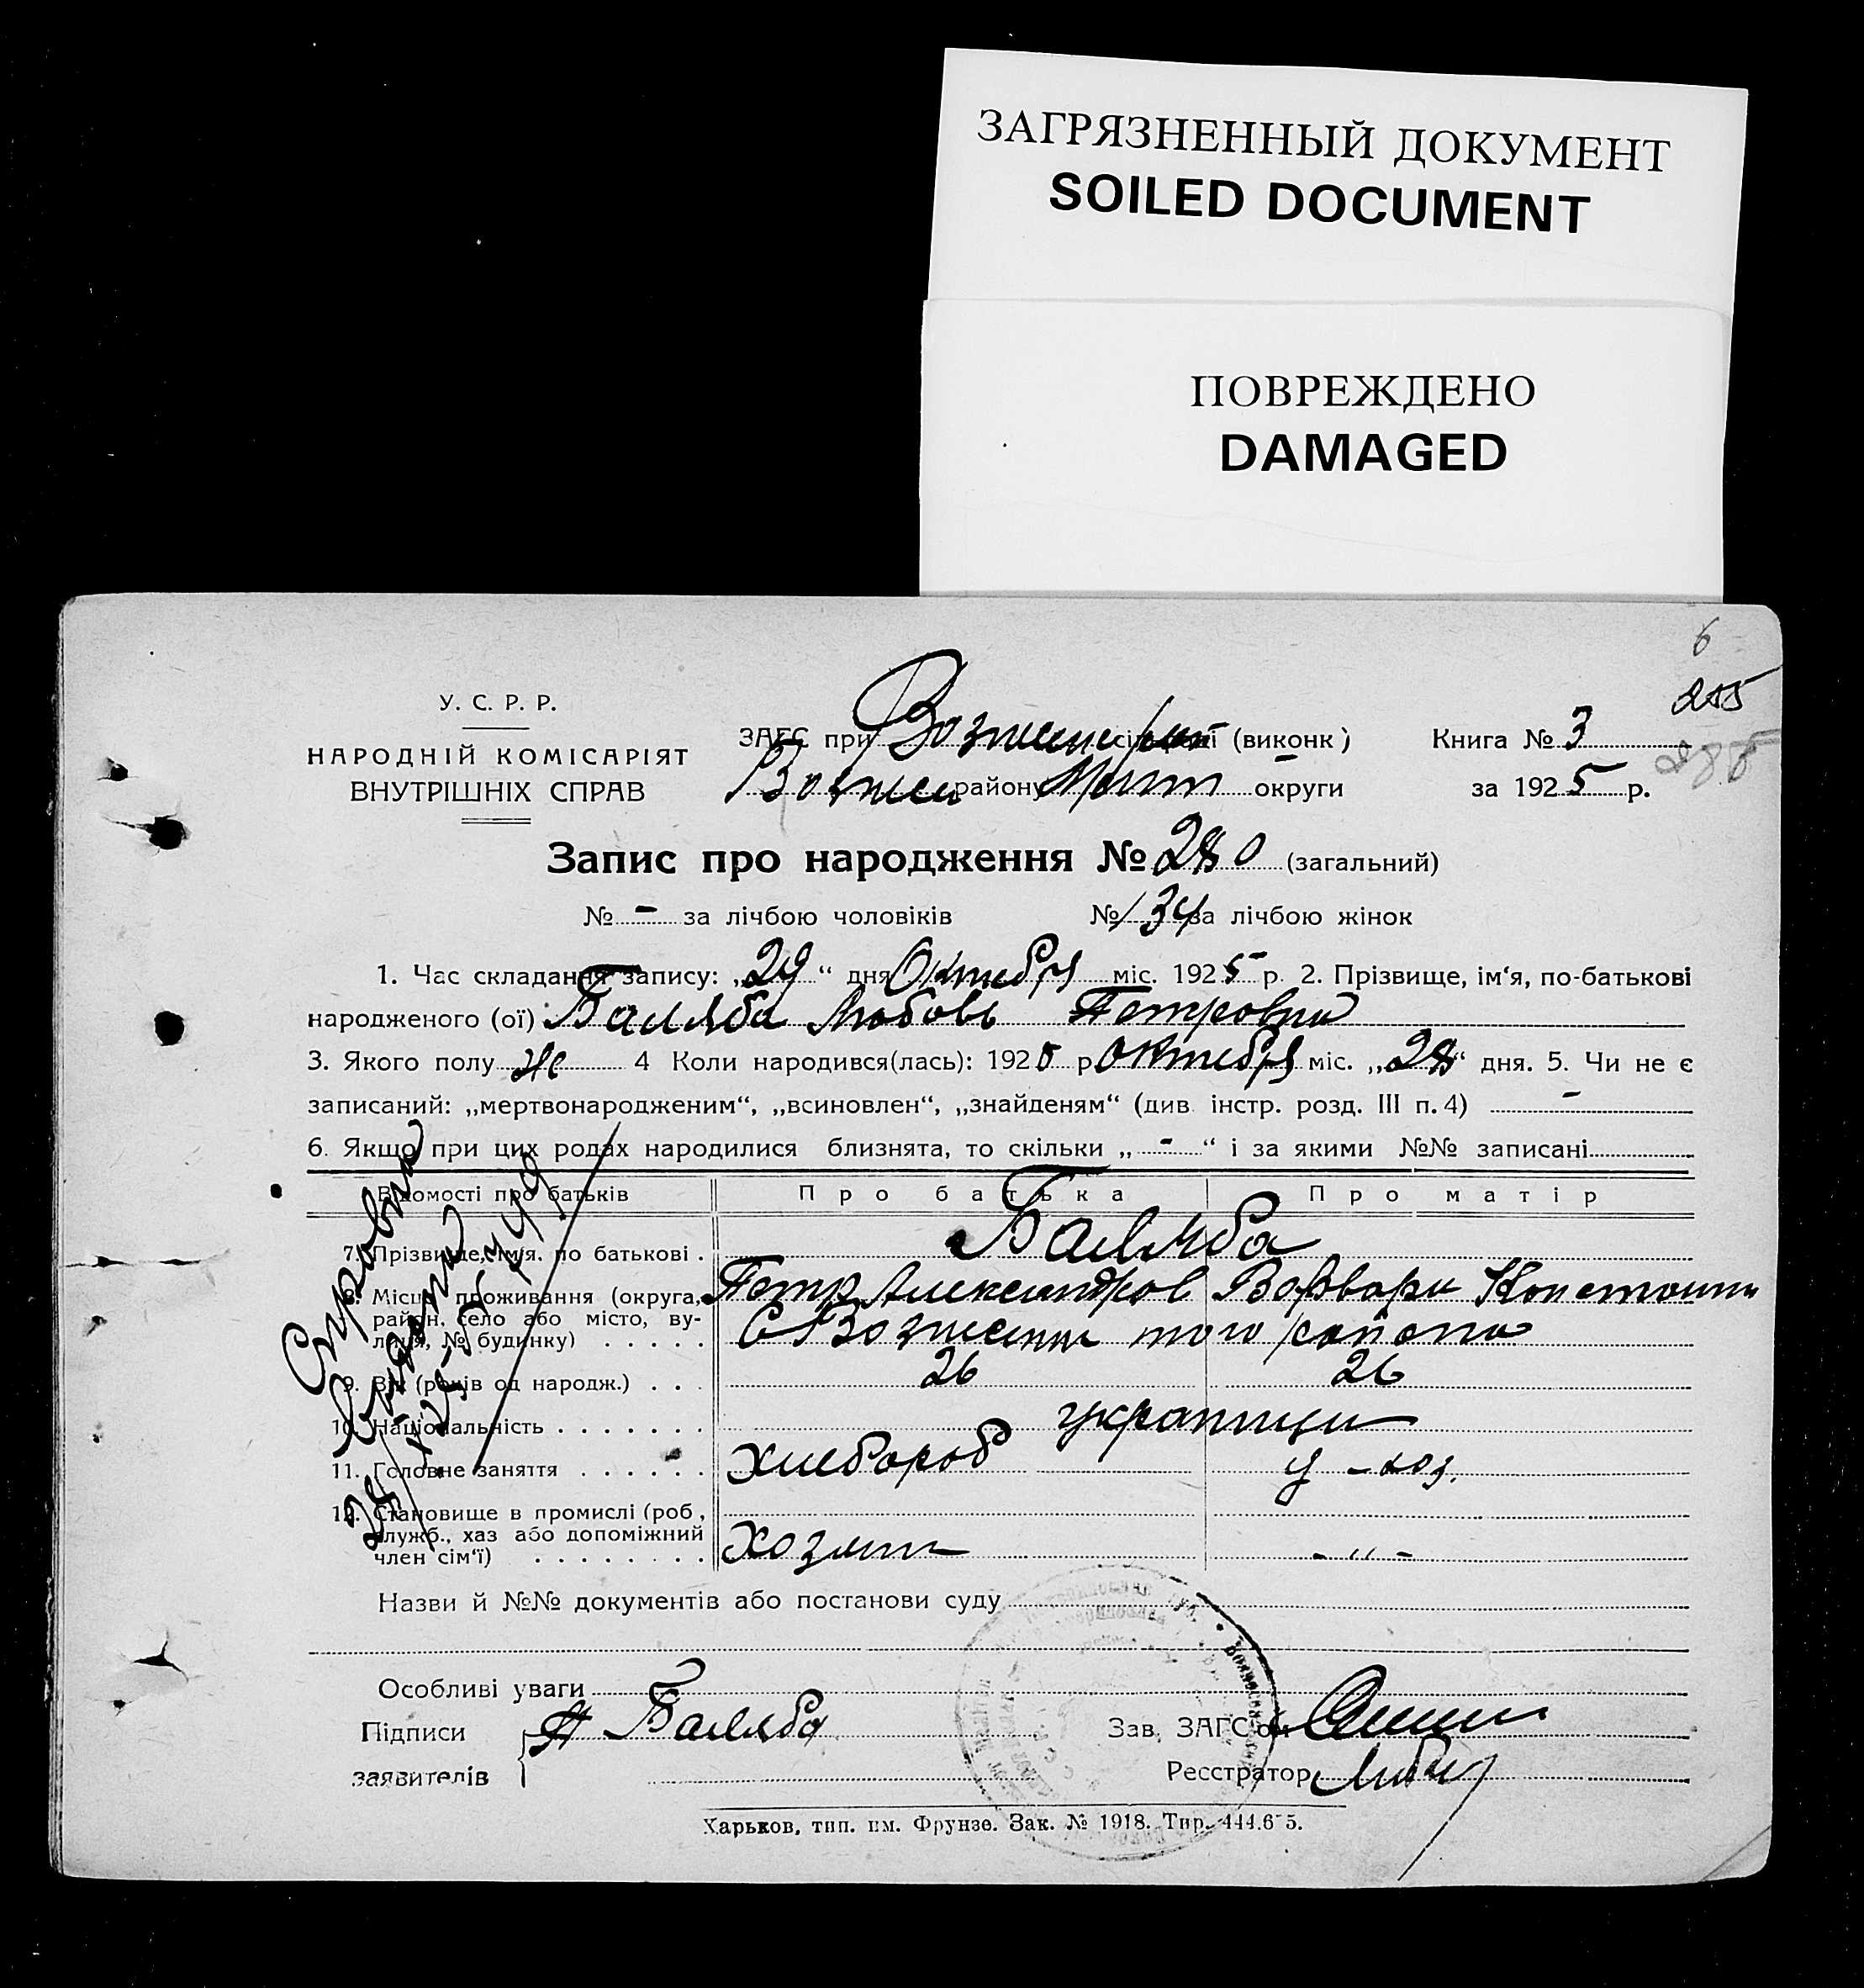 ЗАГРЯЗНЕННЫЙ ДОКУМЕНТ
SOILED DOCUMENT
ПОВРЕЖДЕНО
DAMAGED
6
255
285
У. С. Р. Р.
НАРОДНІЙ КОМІСАРІЯТ
ВНУТРІШНІХ СПРАВ
ЗАГС при (виконк)
району округи
Книга № 3
за 1925 р.
Запис про народження № 280 (загальний)
№ - за лічбою чоловіків № 134 за лічбою жінок
1. Час складання запису: „29“ дня Октября міс. 1925 р. 2. Прізвище, ім'я, по-батькові
народженого (ої) Баляба Любовь Петровна
3. Якого полу ж 4 Коли народився(лась): 1925 р Октября міс. „28“ дня. 5. Чи не є
записаний: „мертвонародженим“, „всиновлен“, „знайденям“ (див. інстр. розд. III п. 4) -
6. Якщо при цих родах народилися близнята, то скільки „-“ і за якими №№ записані
Відомості про батьків Про батька Про матір
7. Прізвище, ім'я. по батькові . Баляба
Петр Александров Варвара Констант
8. Місце проживання (округа, район, село або місто, вулиця, № будинку) . . . . . того района
9. Вік (років од народж.) . . . 26 26
10. Національність . . . . . . . украинцы
11. Головне заняття . . . . . . Хлебороб
12. Становище в промислі (роб., служб., хаз або допоміжний член сім'ї) . . . . . . . . Хозяин - " -
Справка
Выдана
Назви й №№ документів або постанови суду
Особливі уваги
Підписи П Баляба
заявителів
Зав. ЗАГС'ом
Реєстратор
Харьков, тип. им. Фрунзе. Зак. № 1918. Тир. 444.675.